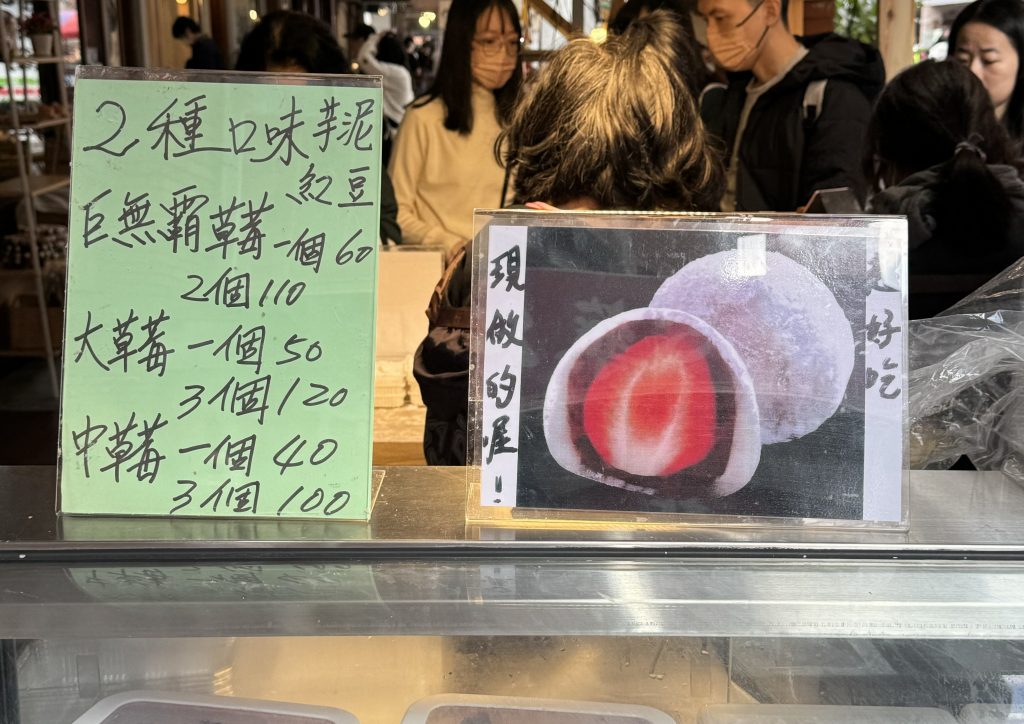 2種口味芋泥
紅豆
巨無霸草莓一個60
2個110
大草莓一個50
3個120
中草莓一個40
3個100
現做的喔!
好吃